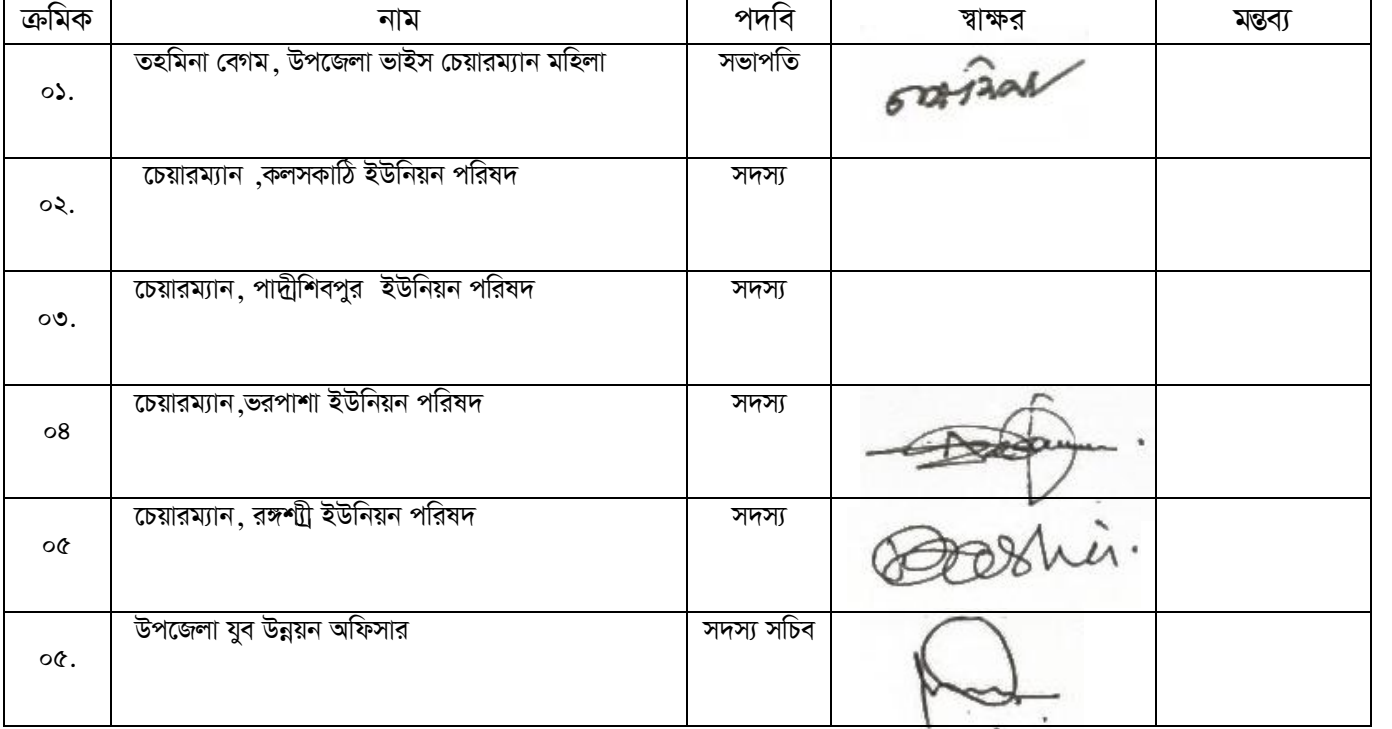 ক্রমিক নাম পদবি স্বাক্ষর মন্তব্য
০১. তহমিনা বেগম, উপজেলা ভাইস চেয়ারম্যান মহিলা সভাপতি
০২. চেয়ারম্যান ,কলসকাঠি ইউনিয়ন পরিষদ সদস্য
০৩. চেয়ারম্যান, পাদ্রীশিবপুর ইউনিয়ন পরিষদ সদস্য
০৪ চেয়ারম্যান,ভরপাশা ইউনিয়ন পরিষদ সদস্য
০৫ চেয়ারম্যান, রঙ্গশ্রী ইউনিয়ন পরিষদ সদস্য
০৫. উপজেলা যুব উন্নয়ন অফিসার সদস্য সচিব